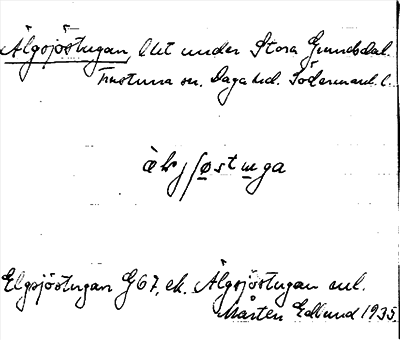 Älgsjöstugan, lht under Stora Grundsdal.
Frustuna sn. Daga hd. Södermanl. l.
àḷksjøstuga
Elgsjöstugan G67, ek. Älgsjöstugan enl.
Mårten Edlund 1935.